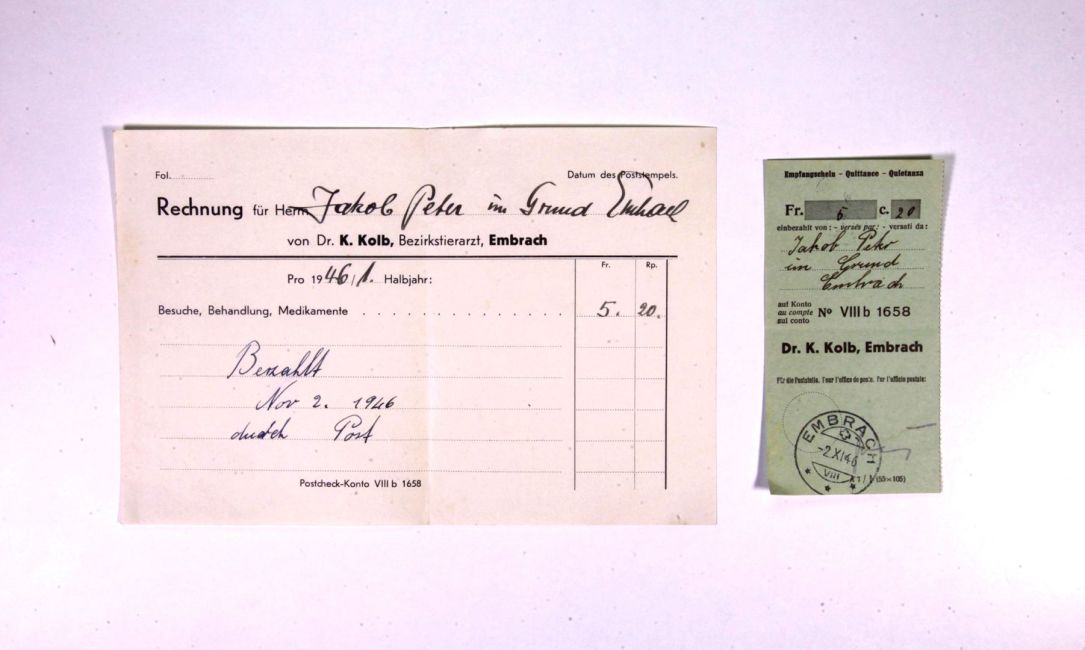 Fol.
Datum des Poststempels.
Rechnung für Herrn Jakob Peter im Grund Embrach
von Dr. K. Kolb, Bezirkstierarzt, Embrach
Fr. Rp.
Pro 1946/1. Halbjahr:
Besuche, Behandlung, Medikamente 5. 20.
Bezahlt
Nov 2. 1946
durch Post
Postcheck-Konto VIII b 1658
Empfangschein - Quittance - Quietanza
Fr. 5 c. 20
einbezahlt von: - versés par: - versati da:
Jakob Peter
im Grund
Embrach
auf Konto
au compte No VIII b 1658
sul conto
Dr. K. Kolb, Embrach
Für die Poststelle. Pour l'office de poste. Per l'ufficio postale:
EMBRACH
-2.XI.46
VIII
(55×105)